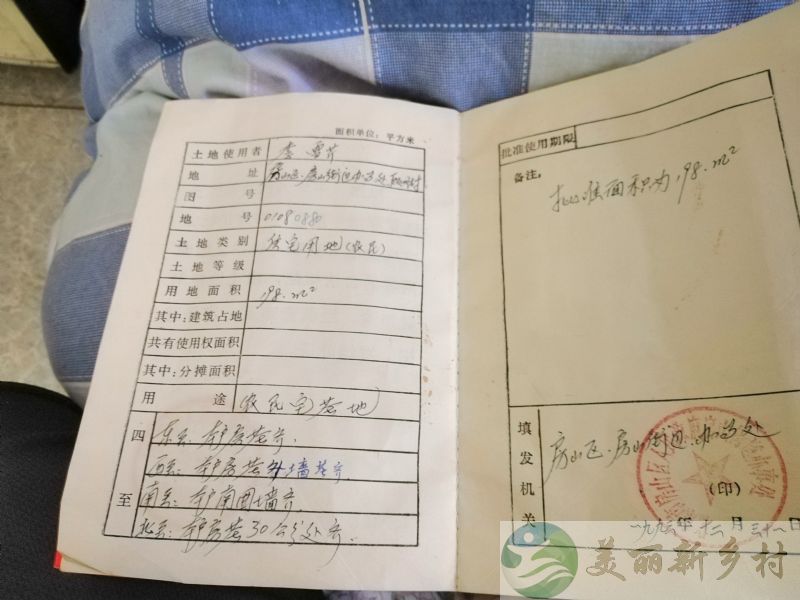 面积单位：平方米
土地使用者 李雪芹
地址 房山区.房山街道办事处
图号
地号 0109088
土地类别 住宅用地(农民)
土地等级
用地面积 198.m²
其中:建筑占地
共有使用权面积
其中:分摊面积
用途 农民宅基地
四至
东至:本户房基齐.
西至:本户房基外墙基齐.
南至:本户南围墙齐.
北至:本户房基30公分处齐.
批准使用期限
备注:
批准面积为198.m²
填发机关
房山区.房山街道办事处
(印)
一九九三年十二月三十一日
美丽新乡村